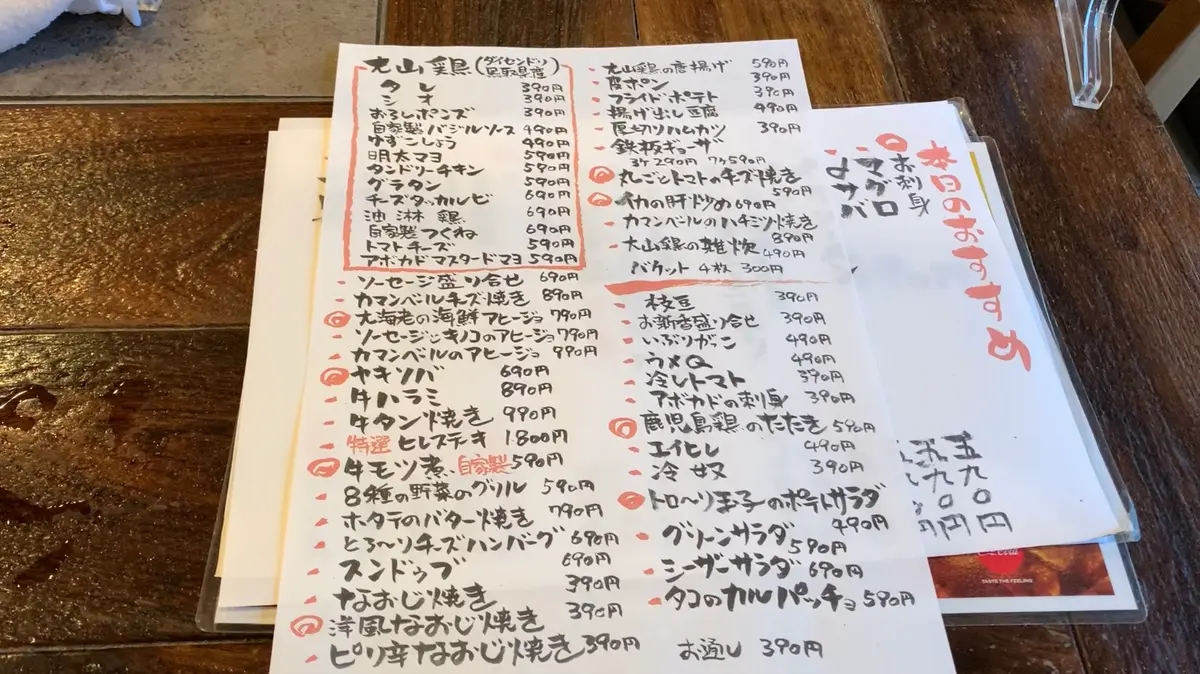 大山鶏(ダイセンドリ 鳥取県産)
タレ 390円
シオ 390円
おろしポンズ 390円
自家製バジルソース 490円
ゆずこしょう 490円
明太マヨ 590円
タンドリーチキン 590円
グラタン 590円
チーズタッカルビ 690円
油淋鶏 690円
自家製つくね 690円
トマトチーズ 590円
アボカドマスタードマヨ 590円
ソーセージ盛り合せ 690円
カマンベールチーズ焼き 890円
大海老の海鮮アヒージョ 790円
ソーセージとキノコのアヒージョ 790円
カマンベールのアヒージョ 990円
ヤキソバ 690円
牛ハラミ 890円
牛タン焼き 990円
特選ヒレステーキ 1.800円
牛モツ煮 自家製 590円
8種の野菜のグリル 590円
ホタテのバター焼き 790円
とろ〜りチーズハンバーグ 690円
スンドゥブ 690円
なおじ焼き 390円
洋風なおじ焼き 390円
ピリ辛なおじ焼き 390円
大山鶏の唐揚げ 590円
皮ポン 390円
フライドポテト 390円
揚げ出し豆腐 490円
厚切りハムカツ 390円
鉄板ギョーザ
3ヶ290円 7ヶ590円
丸ごとトマトのチーズ焼き
590円
イカの肝炒め 690円
カマンベールのハチミツ焼き
890円
大山鶏の雑炊 490円
バケット 4枚 300円
枝豆 390円
お新香盛り合せ 390円
いぶりガッコ 490円
ウメQ 490円
冷しトマト 390円
アボカドの刺身 390円
鹿児島鶏のたたき 590円
エイヒレ 490円
冷奴 390円
トロ〜リ玉子のポテトサラダ
490円
グリーンサラダ 590円
シーザーサラダ 690円
タコのカルパッチョ 590円
お通し 390円
本日のおすすめ
お刺身
マグロ
サバ
五九〇円
五九〇円
Coca-Cola
TASTE THE FEELING